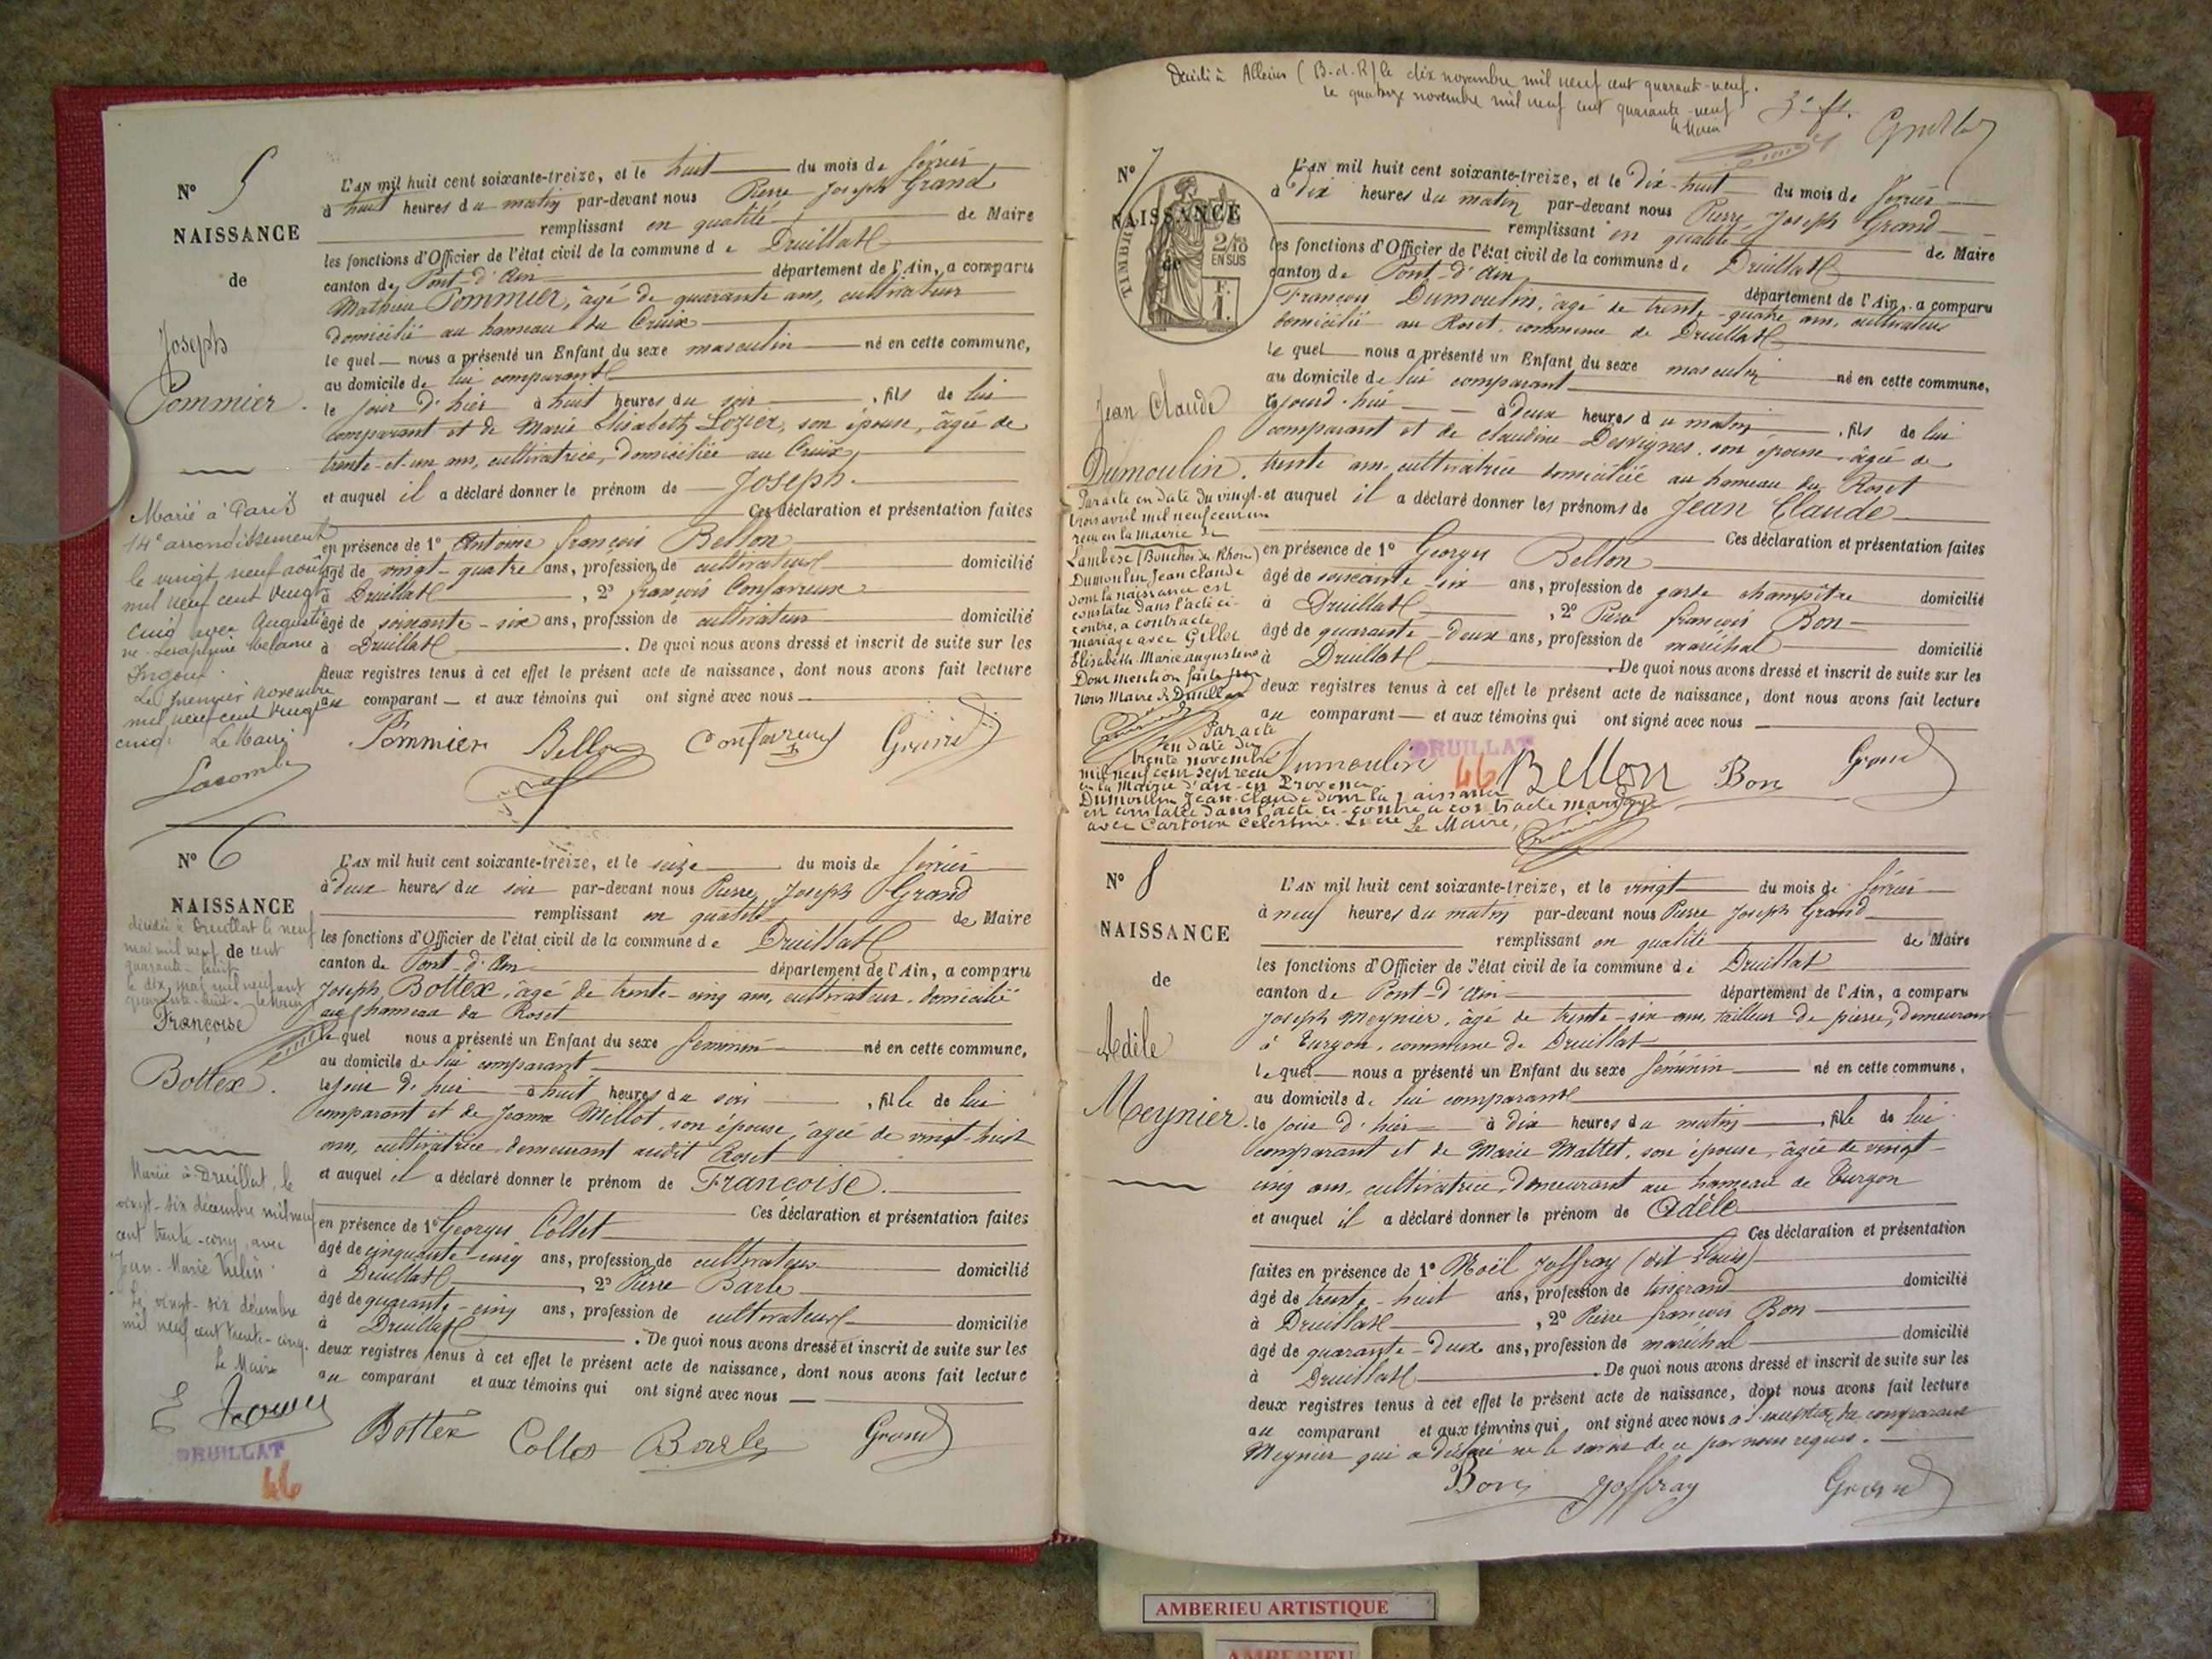 N° 5
NAISSANCE
de
Joseph
Pommier.
L'AN mil huit cent soixante-treize, et le huit du mois de février
à huit heures du matin par-devant nous Pierre Joseph Grand
remplissant en qualité de Maire
les fonctions d'Officier de l'état civil de la commune de Druillat
canton de Pont-d'Ain département de l'Ain, a comparu
Mathieu Pommier, âgé de quarante ans, cultivateur
domicilié au hameau du Cruix
lequel nous a présenté un Enfant du sexe masculin né en cette commune,
au domicile de lui comparant
le jour d'hier à huit heures du soir, fils de lui
comparant et de Marie Elisabeth Lozier, son épouse, âgée de
trente-et-un ans, cultivatrice, domiciliée au Cruix,
et auquel il a déclaré donner le prénom de Joseph.
Ces déclaration et présentation faites
en présence de 1° Antoine françois Bellon
âgé de vingt-quatre ans, profession de cultivateur domicilié
à Druillat, 2° françois Confavreux
âgé de soixante-six ans, profession de cultivateur domicilié
à Druillat. De quoi nous avons dressé et inscrit de suite sur les
deux registres tenus à cet effet le présent acte de naissance, dont nous avons fait lecture
au comparant et aux témoins qui ont signé avec nous
Pommier Bellon Confavreux Grand
Marié à Paris
14e arrondissement
le vingt neuf août
mil neuf cent vingt
cinq avec Augusti
ne Séraphine Mélanie
Le premier novembre
mil neuf cent vingt
cinq. Le Maire
Lacombe
N° 6
NAISSANCE
de
décédée à Druillat le neuf
mai mil neuf cent
quarante-huit
le dix mai mil neuf cent
quarante-huit. le Maire
Françoise
Bottex.
L'AN mil huit cent soixante-treize, et le seize du mois de février
à deux heures du soir par-devant nous Pierre Joseph Grand
remplissant en qualité de Maire
les fonctions d'Officier de l'état civil de la commune de Druillat
canton de Pont-d'Ain département de l'Ain, a comparu
Joseph Bottex, âgé de trente-cinq ans, cultivateur, domicilié
au hameau du Roset
lequel nous a présenté un Enfant du sexe féminin né en cette commune,
au domicile de lui comparant
le jour d'hier à huit heures du soir, fille de lui
comparant et de Jeanne Millot, son épouse, âgée de vingt-huit
ans, cultivatrice demeurant audit Roset
et auquel il a déclaré donner le prénom de Françoise.
Ces déclaration et présentation faites
en présence de 1° Georges Collet
âgé de cinquante-cinq ans, profession de cultivateur domicilié
à Druillat, 2° Pierre Barle
âgé de quarante-cinq ans, profession de cultivateur domicilié
à Druillat. De quoi nous avons dressé et inscrit de suite sur les
deux registres tenus à cet effet le présent acte de naissance, dont nous avons fait lecture
au comparant et aux témoins qui ont signé avec nous
Bottex Collet Barle Grand
Mariée à Druillat, le
vingt-six décembre mil neuf
cent trente-cinq, avec
Jean-Marie
Le vingt-six décembre
mil neuf cent trente-cinq.
Le Maire
DRUILLAT
46
Décédé à Alleins (B-d-R) le dix novembre mil neuf cent quarante-neuf.
Le quatorze novembre mil neuf cent quarante-neuf
le Maire
N° 7
NAISSANCE
de
TIMBRE
2/10
EN SUS
F.
1.
Jean Claude
Dumoulin.
L'AN mil huit cent soixante-treize, et le dix-huit du mois de février
à dix heures du matin par-devant nous Pierre Joseph Grand
remplissant en qualité de Maire
les fonctions d'Officier de l'état civil de la commune de Druillat
canton de Pont-d'Ain département de l'Ain, a comparu
François Dumoulin, âgé de trente-quatre ans, cultivateur
domicilié au Roset, commune de Druillat
lequel nous a présenté un Enfant du sexe masculin né en cette commune,
au domicile de lui comparant
ce jourd'hui à deux heures du matin, fils de lui
comparant et de Claudine Desvignes, son épouse, âgée de
trente ans, cultivatrice domiciliée au hameau du Roset
et auquel il a déclaré donner les prénoms de Jean Claude
Ces déclaration et présentation faites
en présence de 1° Georges Bellon
âgé de soixante-six ans, profession de garde champêtre domicilié
à Druillat, 2° Pierre françois Bon
âgé de quarante-deux ans, profession de maréchal domicilié
à Druillat. De quoi nous avons dressé et inscrit de suite sur les
deux registres tenus à cet effet le présent acte de naissance, dont nous avons fait lecture
au comparant et aux témoins qui ont signé avec nous
Dumoulin Bellon Bon Grand
DRUILLAT
46
Par acte en date du vingt-
trois avril mil neuf cent un
reçu en la mairie de
Lambesc (Bouches du Rhône)
Dumoulin Jean Claude
dont la naissance est
constatée dans l'acte ci-
contre, a contracté
mariage avec Gillet
Elisabeth Marie Augustine
Dont mention faite par
Nous Maire de Druillat
Par acte
en date du
trente novembre
mil neuf cent sept reçu
en la Mairie d'Aix-en-Provence
Dumoulin Jean-Claude dont la naissance
est constatée dans l'acte ci-contre a contracté mariage
avec Cartoux Célestine. Le Maire,
N° 8
NAISSANCE
de
Adèle
Meynier.
L'AN mil huit cent soixante-treize, et le vingt du mois de février
à neuf heures du matin par-devant nous Pierre Joseph Grand
remplissant en qualité de Maire
les fonctions d'Officier de l'état civil de la commune de Druillat
canton de Pont-d'Ain département de l'Ain, a comparu
Joseph Meynier, âgé de trente-six ans, tailleur de pierre, demeurant
à Turgon, commune de Druillat
lequel nous a présenté un Enfant du sexe féminin né en cette commune,
au domicile de lui comparant
le jour d'hier à dix heures du matin, fille de lui
comparant et de Marie Mattet, son épouse, âgée de vingt-
cinq ans, cultivatrice, demeurant au hameau de Turgon
et auquel il a déclaré donner le prénom de Adèle
Ces déclaration et présentation
faites en présence de 1° Noël Joffray (dit Louis)
âgé de trente-huit ans, profession de tisserand domicilié
à Druillat, 2° Pierre françois Bon
âgé de quarante-deux ans, profession de maréchal domicilié
à Druillat. De quoi nous avons dressé et inscrit de suite sur les
deux registres tenus à cet effet le présent acte de naissance, dont nous avons fait lecture
au comparant et aux témoins qui ont signé avec nous à l'exception du comparant
Meynier qui a déclaré ne le savoir de ce par nous requis.
Bon Joffray Grand
AMBERIEU ARTISTIQUE
AMBERIEU